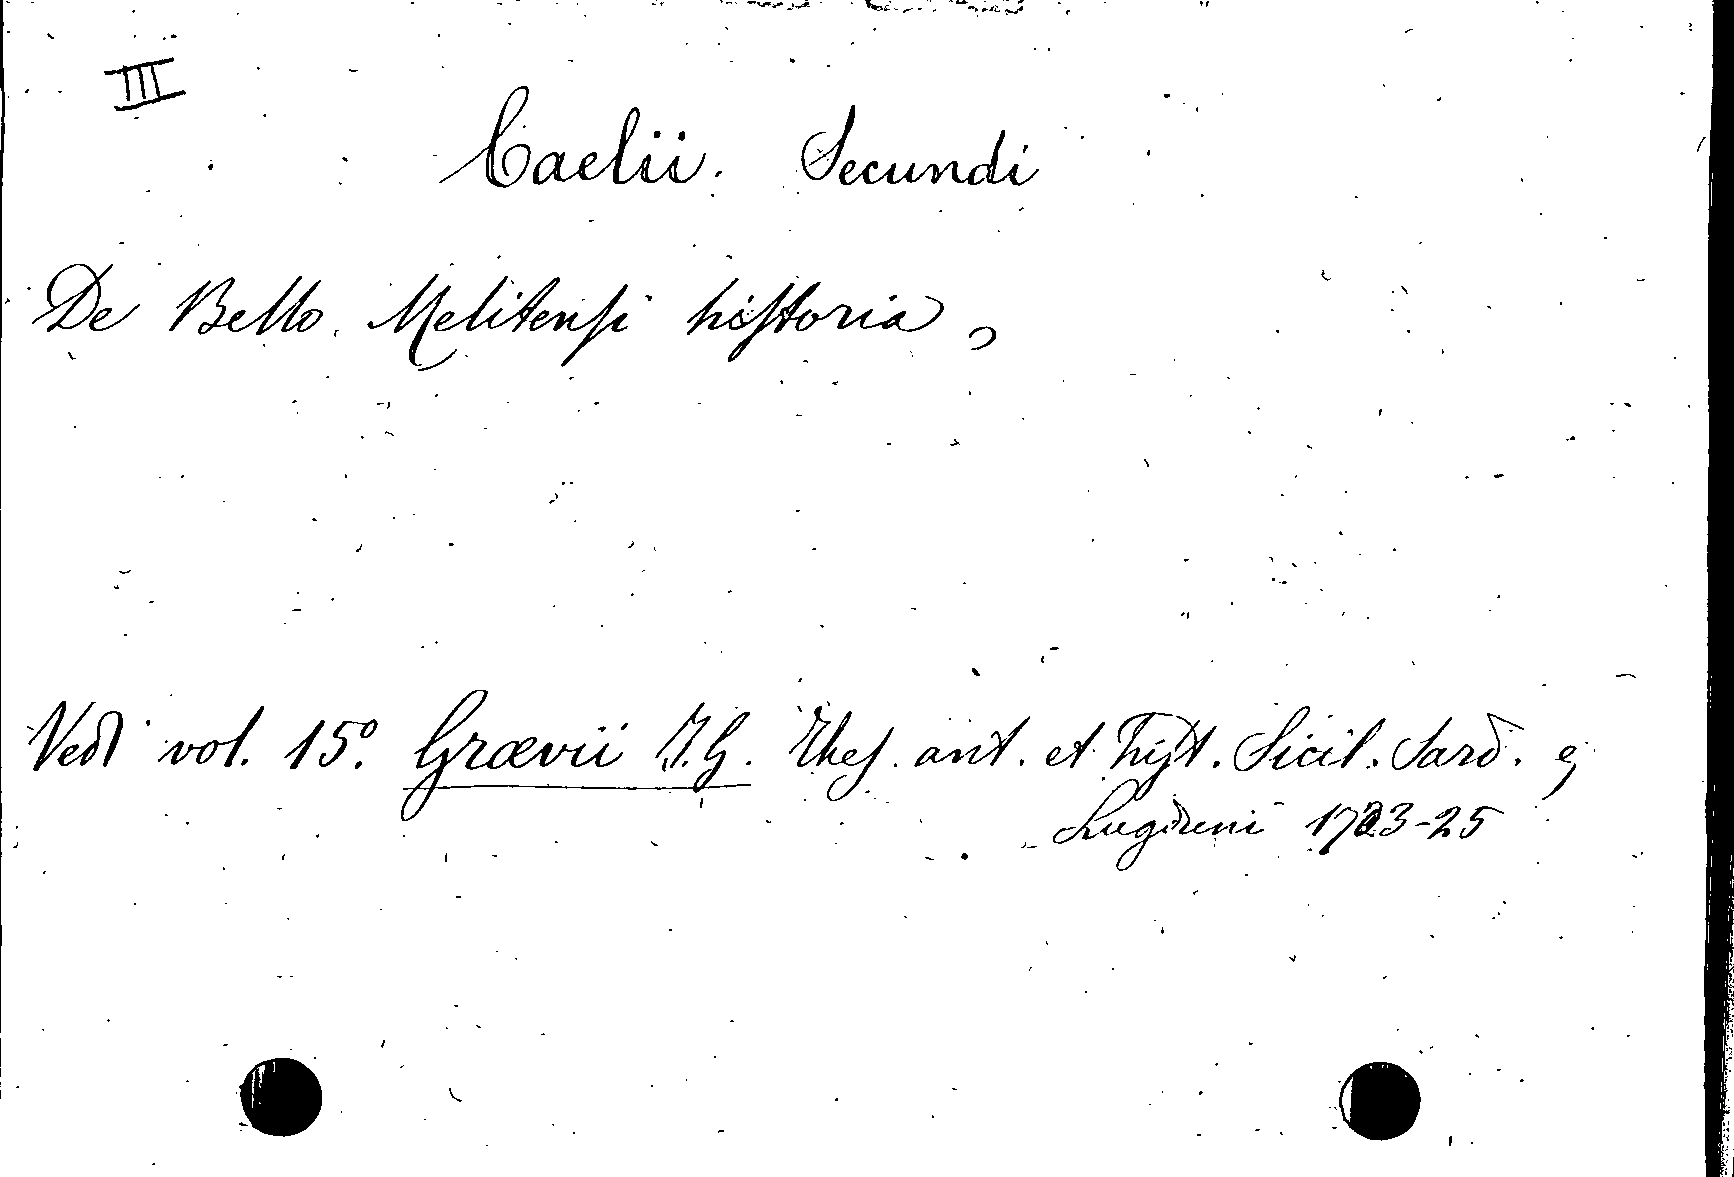 III
Caelii. Secundi
De Bello Melitensi historia,
Vedi vol. 15º. Grævii I.G. Thes. ant. et hist. Sicil. Sard. ej
Lugduni 1723-25